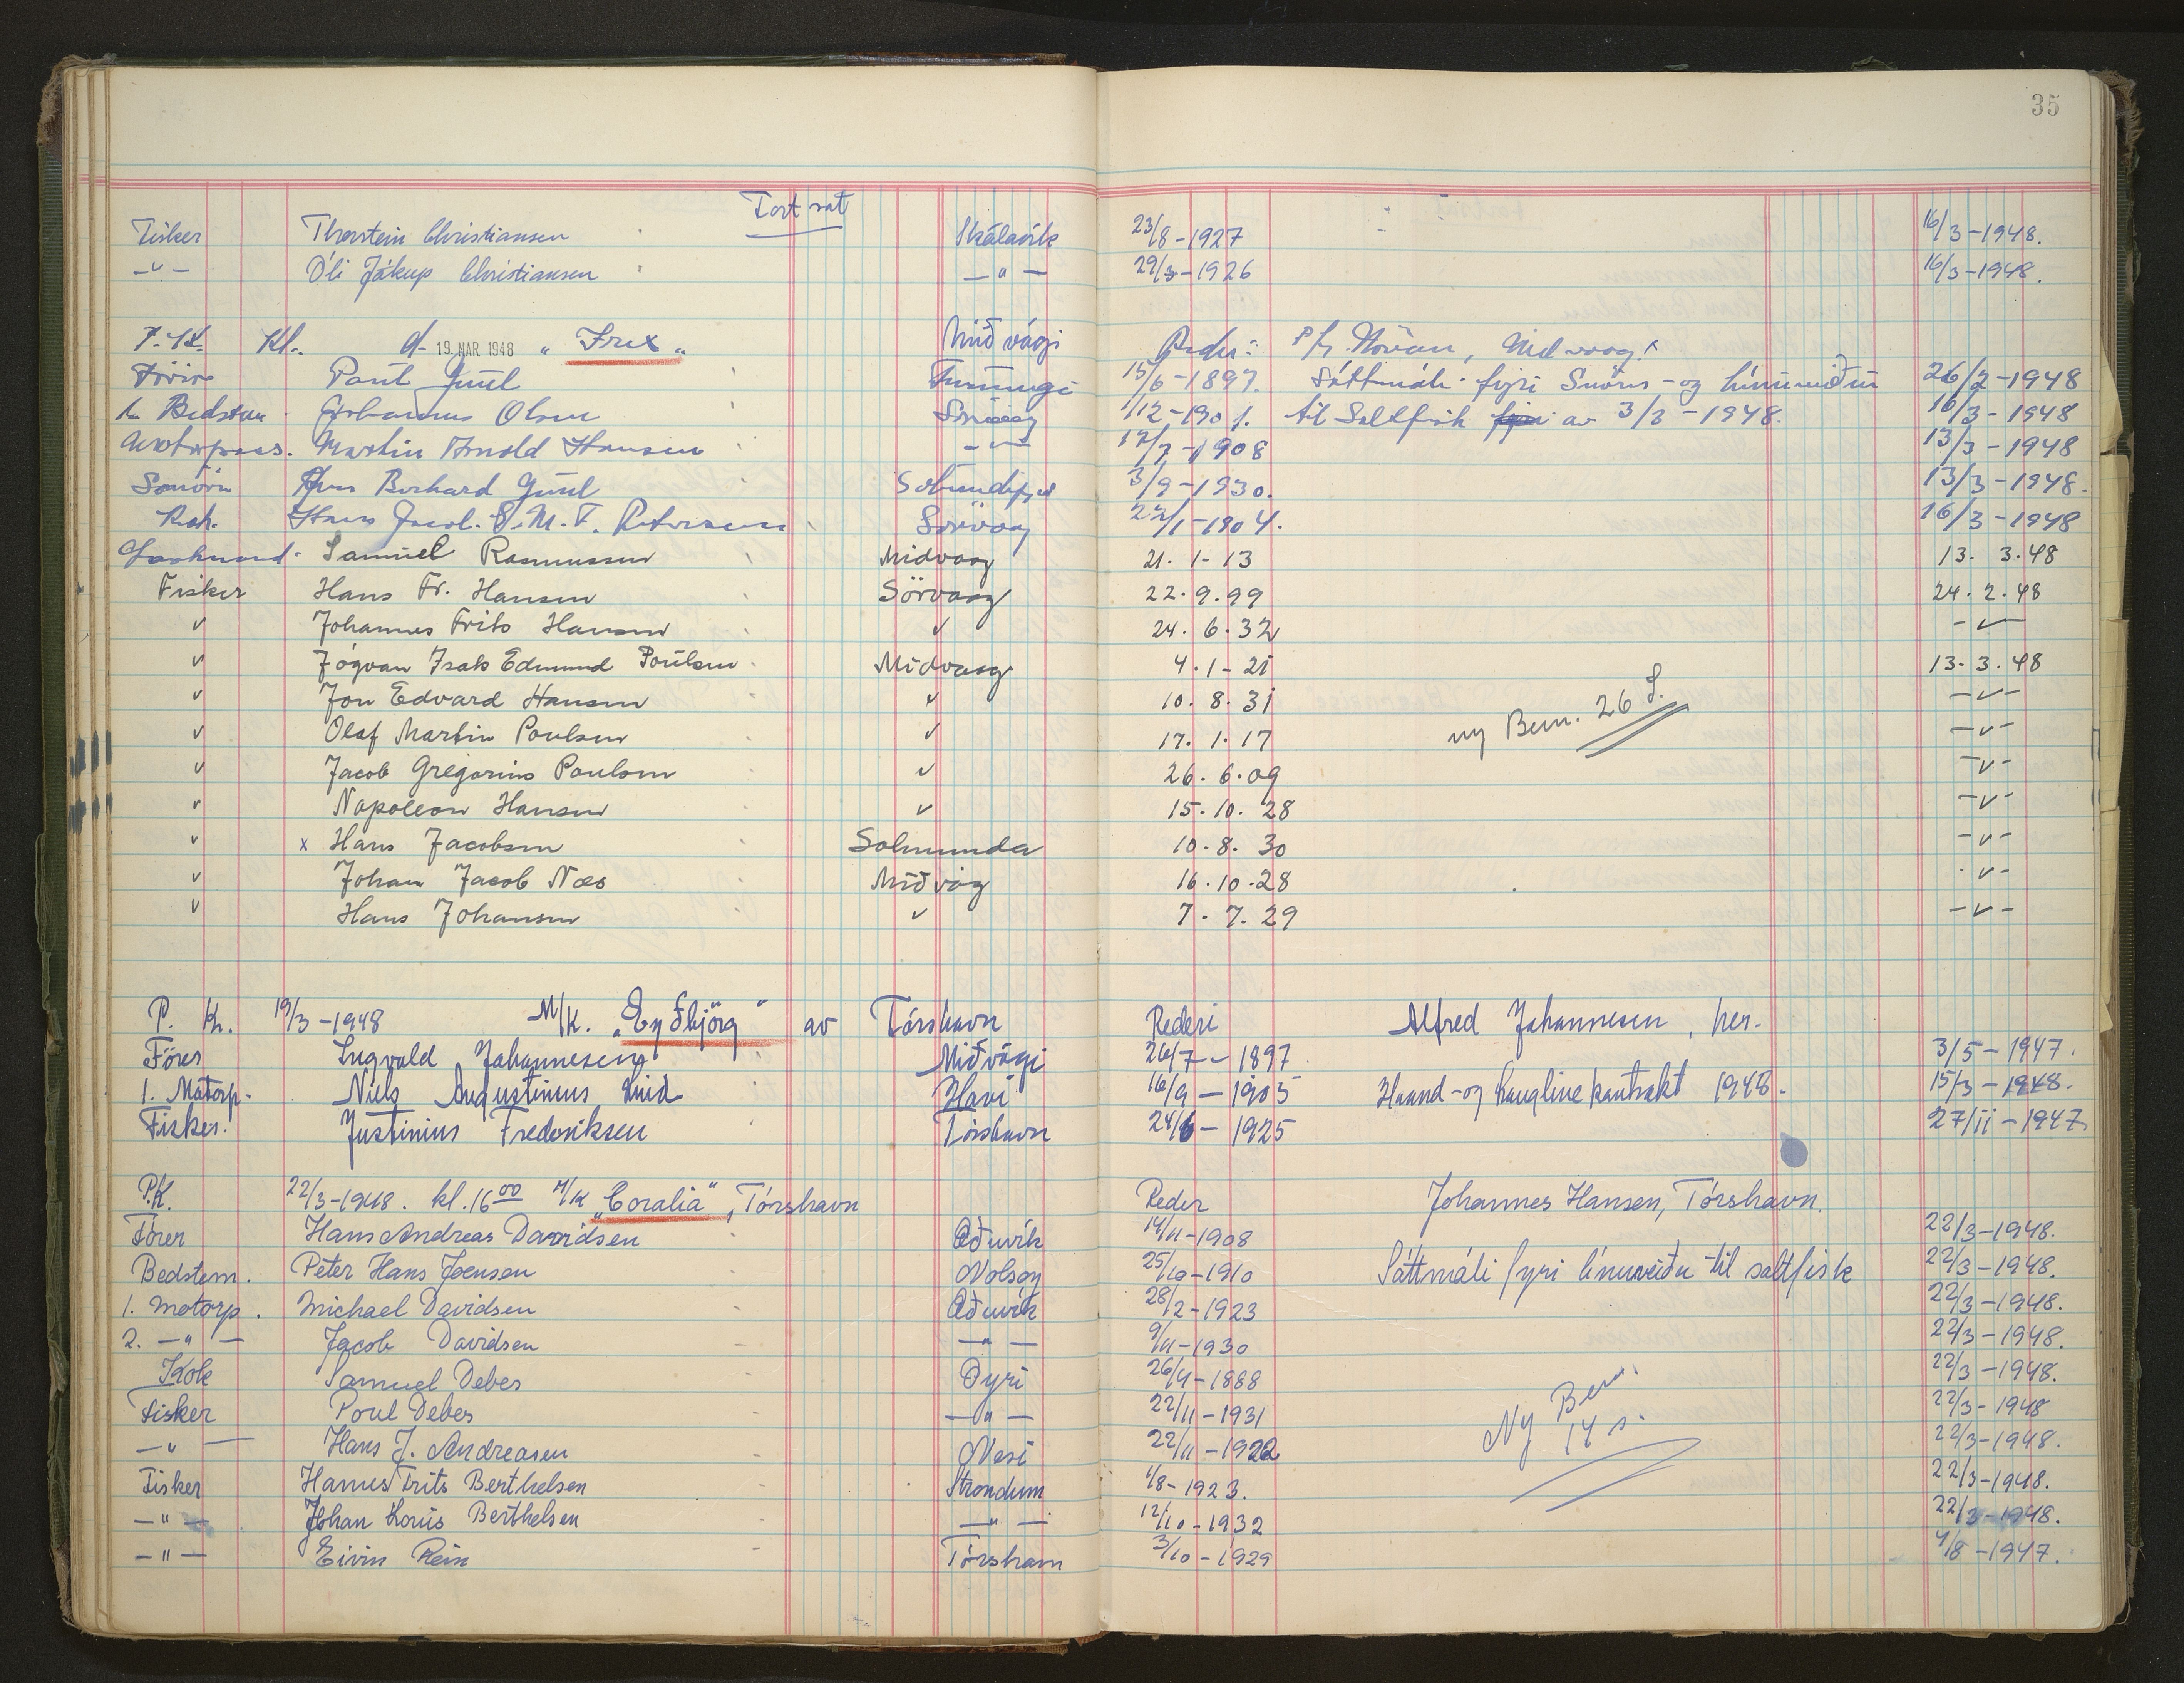 35
Fortsat
Fisker Thorstein Christiansen Skálavík 23/8-1927 16/3-1948.
-"- Óli Jákup Christiansen -"- 29/3-1926 16/3-1948.
P.K. Kl. d. 19. MAR 1948 "Frux" Miðvági Reder: P/f. Midvaag
Förer Paul Juul 15/6-1897. Sáttmáli fyri Snøris- og línuveiðu 26/2-1948
1. Bedstm. Johannes Olsen Sörvaag 1/12-1901. til Saltfisk av 3/3-1948. 16/3-1948
Motorpass. Martin Arnold Hansen -"- 17/7-1908 13/3-1948
Smörer Burhard Juul 3/9-1930. 13/3-1948.
Kok. Hans Jacob S. M. F. Petersen Sörvaag 22/1-1904. 16/3-1948
Samuel Rasmussen Midvaag 21. 1-13 13. 3.48
Fisker Hans Fr. Hansen Sörvaag 22.9.99 24.2.48
" Johannes Frits Hansen " 24. 6.32 -"-
" Jógvan Isak Edmund Poulsen Midvaag 4.1-21 13.3.48
" Jon Edvard Hansen " 10. 8. 31 -"-
ny Bem. 26 S.
" Olaf Martin Poulsen " 17. 1. 17 -"-
" Jacob Gregorius Poulsen " 26. 6.09 -"-
" Napoleon Hansen " 15.10. 28 -"-
" x Hans Jacobsen Solmunda 10.8. 30 -"-
" Johan Jacob Næs Miðvág 16.10.28 -"-
" Hans Johansen " 7. 7. 29 -"-
P. K. 19/3-1948 M/K. "Eyðbjörg" av Tórshavn Rederi Alfred Johannesen, her.
Förer Ingvald Johannesen Miðvági 26/7-1897. 3/5-1947.
1. Motorp. Niels Augustinius Lind Havi 16/9-1905 Haand-og Langlinekontrakt 1948. 15/3-1948.
Fisker. Justinius Frederiksen Tórshavn 24/6-1925 27/11-1947.
P.K. 22/3-1948. kl. 16 00 M/K "Coralia", Tórshavn Reder Johannes Hansen, Tórshavn.
Förer Hans Andreas Davidsen Øðuvík 14/11-1908 22/3-1948.
Bedstem. Peter Hans Joensen Nolsoy 25/10-1910 Sáttmáli fyri línuveiðu til saltfisk 22/3-1948.
1. motorp. Michael Davidsen Øðuvík 28/2-1923 22/3-1948.
2. -"- Jacob Davidsen -"- 9/11-1930 22/3-1948.
Kok Samuel Debes Oyri 26/4-1888 22/3-1948.
Fisker Poul Debes -"- 22/11-1931 Ny Bem. 14 s. 22/3-1948
-"- Hans J. Andreasen Nesi 22/11-1922 22/3-1948.
Fisker Hanus Frits Berthelsen Strondum 1/8-1923. 22/3-1948.
-"- Johan Louis Berthelsen -"- 12/10-1932 22/3-1948.
-"- Eivin Rein Tórshavn 3/10-1929 4/8-1947.